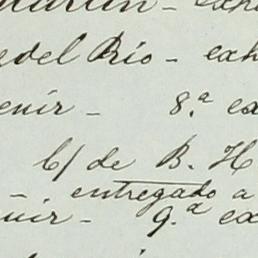 Martin - exh
del Rio - exh
enir - 8.ª ex
C/ de B. H
entregado a
- 
uir - 9.ª ex